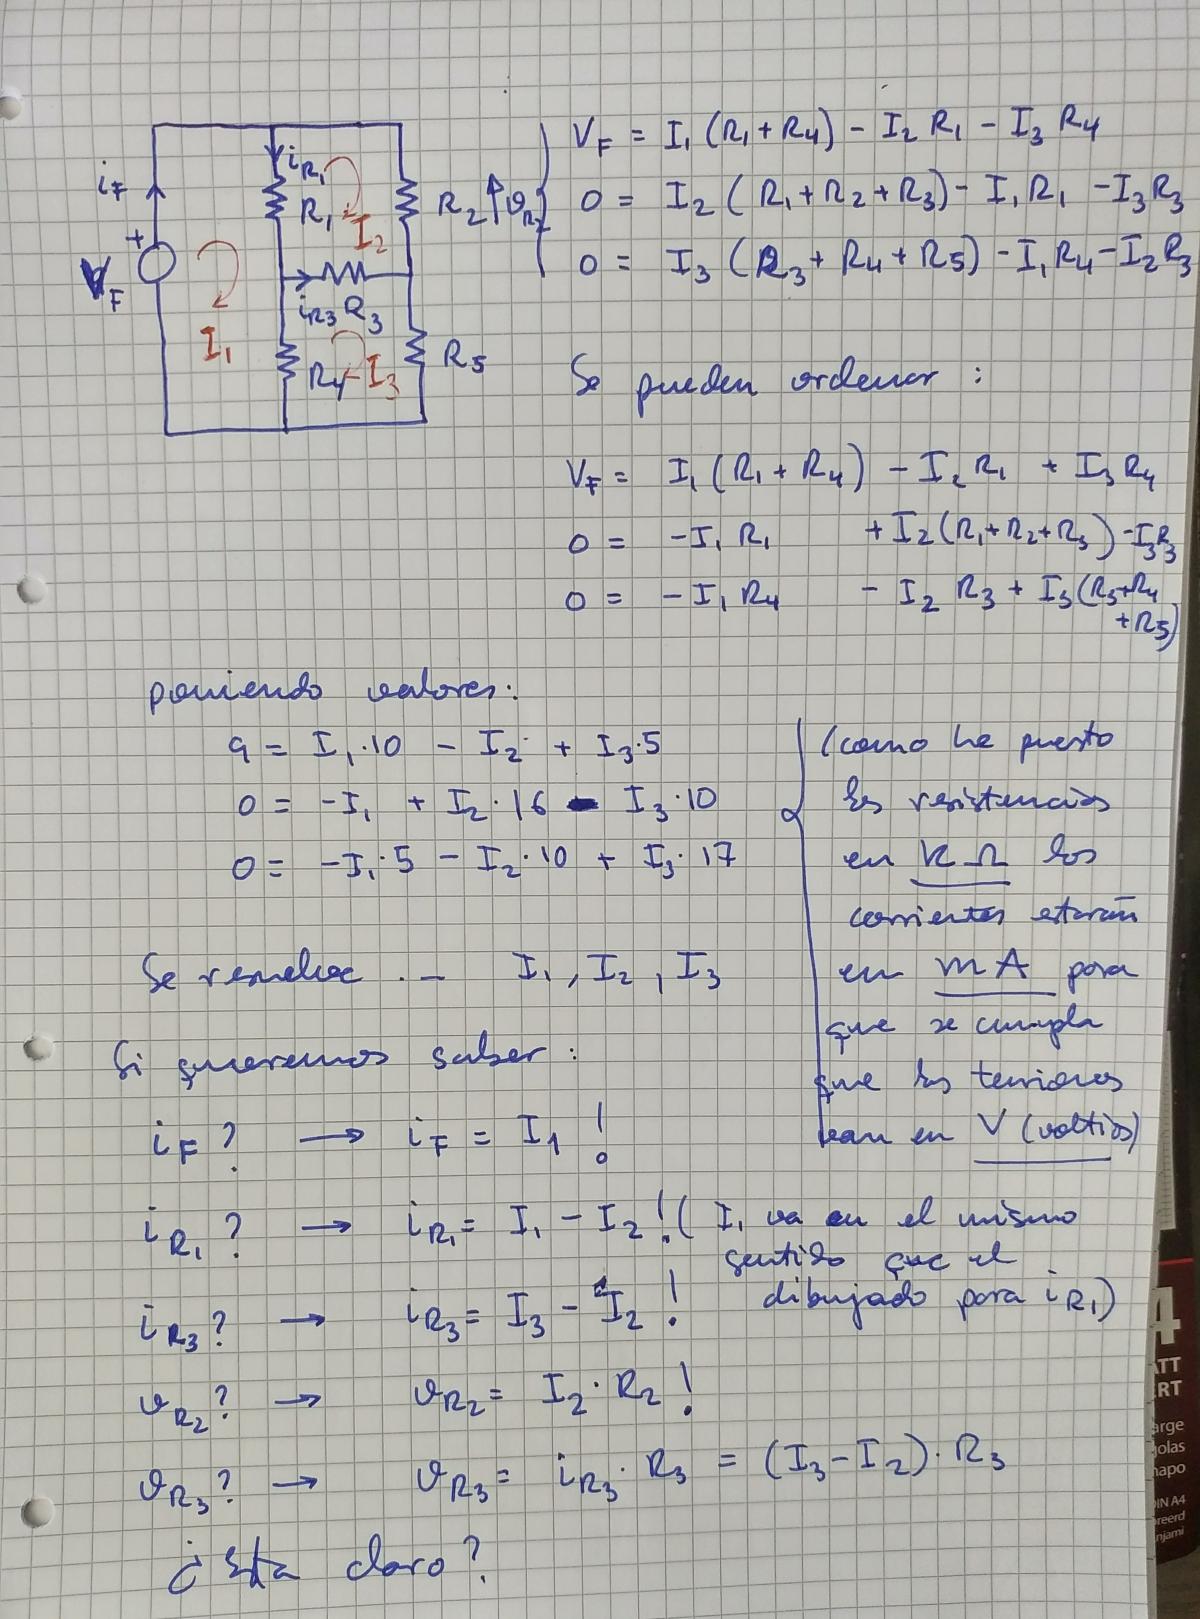 V_F = I₁ (R₁ + R₄) - I₂ R₁ - I₃ R₄
0 = I₂ (R₁ + R₂ + R₃) - I₁ R₁ - I₃ R₃
0 = I₃ (R₃ + R₄ + R₅) - I₁ R₄ - I₂ R₃
i_F
i_R₁
R₁
I₂
R₂
v_R₂
+
V_F
I₁
i_R3
R₃
R₄
I₃
R₅
Se pueden ordenar :
V_F = I₁ (R₁ + R₄) - I₂ R₁ + I₃ R₄
0 = -I₁ R₁ + I₂ (R₁ + R₂ + R₃) - I₃ R₃
0 = -I₁ R₄ - I₂ R₃ + I₃ (R₃ + R₄
+ R₅)
poniendo valores:
9 = I₁·10 - I₂· + I₃·5
0 = -I₁ + I₂·16 - I₃·10
0 = -I₁·5 - I₂·10 + I₃·17
(como he puesto
las resistencias
en KΩ las
corrientes estarán
en mA para
que se cumpla
que las tensiones
sean en V (voltios)
Se resuelve .- I₁, I₂, I₃
Si queremos saber :
i_F? → i_F = I₁ !
i_R₁? → i_R₁ = I₁ - I₂ ! ( I₁ va en el mismo
sentido que el
dibujado para i_R₁)
i_R₃? → i_R₃ = I₃ - I₂ !
v_R₂? → v_R₂ = I₂·R₂ !
v_R₃? → v_R₃ = i_R₃·R₃ = (I₃ - I₂)·R₃
¿Está claro?
4
ATT
ERT
arge
golas
napo
DIN A4